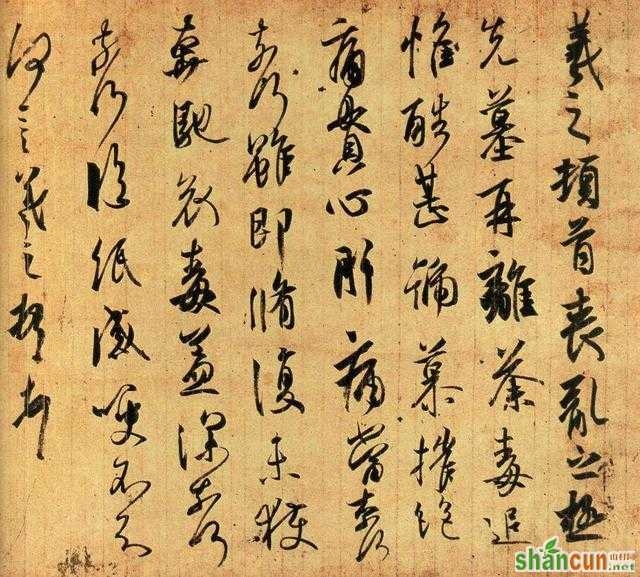 羲之頓首喪亂之極
先墓再離荼毒追
惟酷甚號慕摧絕
痛貫心肝痛當奈何
奈何雖即脩復未獲
奔馳哀毒益深奈何
奈何臨紙感哽不知
何言羲之頓首
山村网
shancun
.net